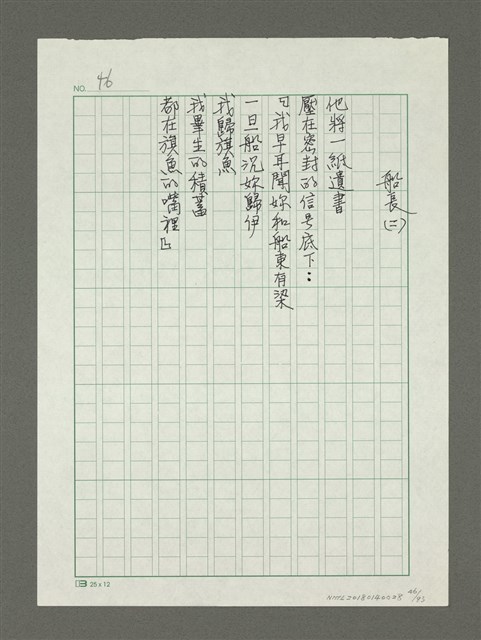 NO. 46
船長(二)
他將一紙遺書
壓在密封的信号底下：
「我早耳聞妳和船東有染
一旦船沉妳歸伊
我歸旗魚
我畢生的積蓄
都在旗魚的嘴裡」
25 x 12
46/93